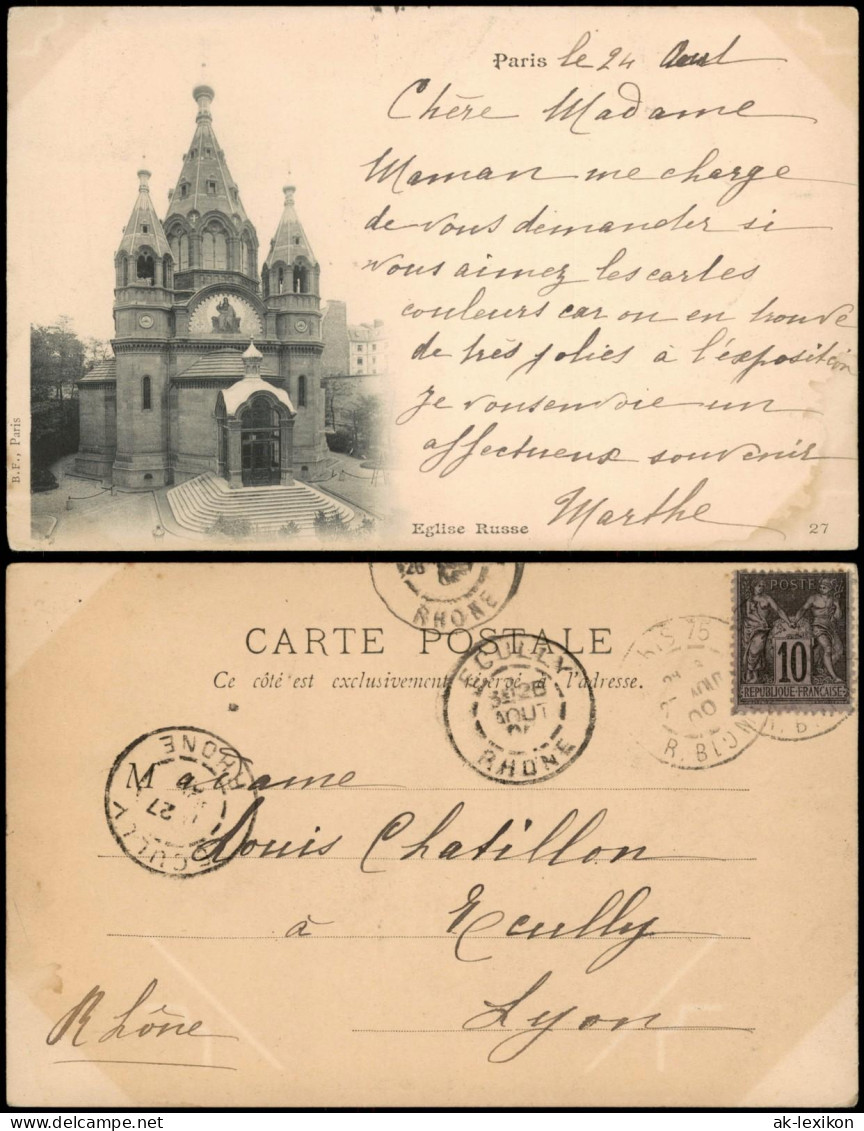 Paris le 24 Août
Chère Madame
Maman me charge
de vous demander si
vous aimez les cartes
couleurs car on en trouve
de très jolies à l'exposition
Je vous envoie un
affectueux souvenir
Marthe
B.F., Paris
Eglise Russe
27
RHONE
CARTE POSTALE
Ce côté est exclusivement réservé à l'adresse.
ECULLY
AOUT
RHONE
POSTE
10
REPUBLIQUE FRANÇAISE
75
AOUT
00
R. B
ECULLY
27
RHONE
Madame
Louis Chatillon
à Ecully
Lyon
Rhône
ak-lexikon